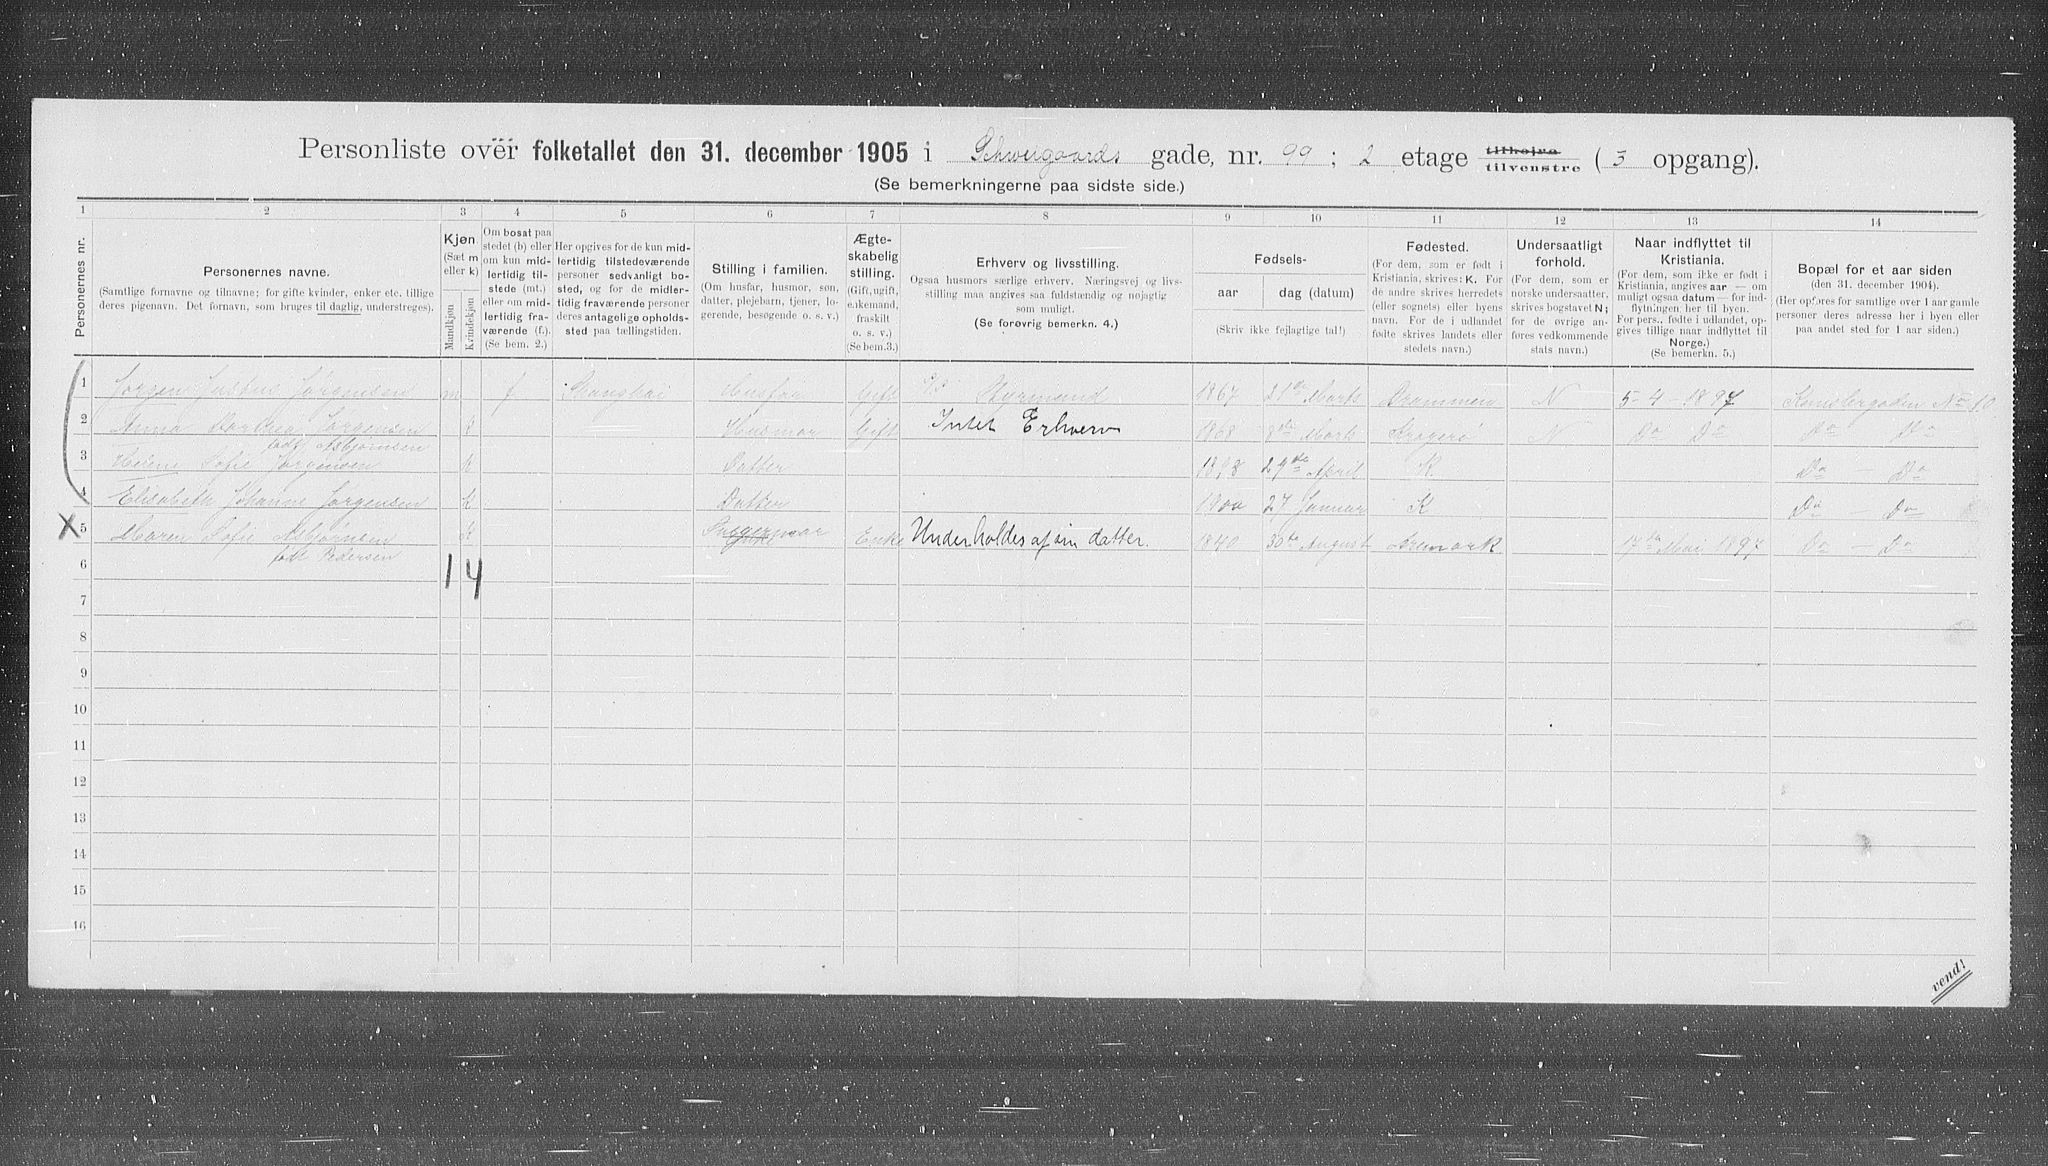 Personliste over folketallet den 31. december 1905 i Schweigaards gade, nr. 99; 2 etage tilhøjre tilvenstre (3 opgang).
(Se bemerkningerne paa sidste side.)
1 2 3 4 5 6 7 8 9 10 11 12 13 14
Personernes nr.
Personernes navne.
(Samtlige fornavne og tilnavne; for gifte kvinder, enker etc. tillige
deres pigenavn. Det fornavn, som bruges til daglig, understreges).
Kjøn
(Sæt m
eller k)
Mandkjøn
Kvindekjøn
Om bosat paa
stedet (b) eller
om kun mid-
lertidig til-
stede (mt.)
eller om mid-
lertidig fra-
værende (f.).
(Se bem. 2.)
Her opgives for de kun mid-
lertidig tilstedeværende
personer sedvanlig bo-
sted, og for de midler-
tidig fraværende personer
deres antagelige opholds-
sted paa tællingstiden.
Stilling i familien.
(Om husfar, husmor, søn,
datter, plejebarn, tjener, lo-
gerende, besøgende o. s. v.)
Ægte-
skabelig
stilling.
(Gift, ugift,
enkemand,
fraskilt
o. s. v.)
(Se bem.3.)
Erhverv og livsstilling.
Ogsaa husmors særlige erhverv. Næringsvej og livs-
stilling maa angives saa fuldstændig og nøjagtig
som muligt.
(Se forøvrig bemerkn. 4.)
Fødsels-
aar dag (datum)
(Skriv ikke fejlagtige tal!)
Fødested.
(For dem, som er født i
Kristiania, skrives: K. For
de andre skrives herredets
(eller sognets) eller byens
navn. For de i udlandet
fødte skrives landets eller
stedets navn.)
Undersaatligt
forhold.
(For dem, som er
norske undersaatter,
skrives bogstavet N;
for de øvrige an-
føres vedkommende
stats navn.)
Naar indflyttet til
Kristiania.
(For dem, som ikke er født i
Kristiania, angives aar — om
muligt ogsaa datum — for ind-
flytningen her til byen.
For pers. fødte i udlandet, op-
gives tillige naar indflyttet til
Norge.)
(Se bemerkn. 5.)
Bopæl for et aar siden
(den 31. december 1904).
(Her opføres for samtlige over 1 aar gamle
personer deres adresse her i byen eller
paa andet sted for 1 aar siden.)
1 Jørgen Justus Jørgensen m f Shanghai Husfar Gift Styrmand 1867 21de Marts Drammen N 5-4-1897 No 10
2 Anna Dorthea Jørgensen k Husmor Gift Intet Erhverv 1868 8de Marts Kragerø N Do Do Do Do
født Asbjørnsen
3 Helene Sofie Jørgensen k Datter 1898 29de April K Do — Do
4 Elisabeth Johanne Jørgensen k Datter 1900 27 Januar K Do — Do
X 5 Maren Sofie Asbjørnsen k Svigermor Enke Underholdes af sin datter. 1840 30te August Aremark 17de Mai 1897 Do — Do
født Pedersen
6 1 4
7
8
9
10
11
12
13
14
15
16
vend!